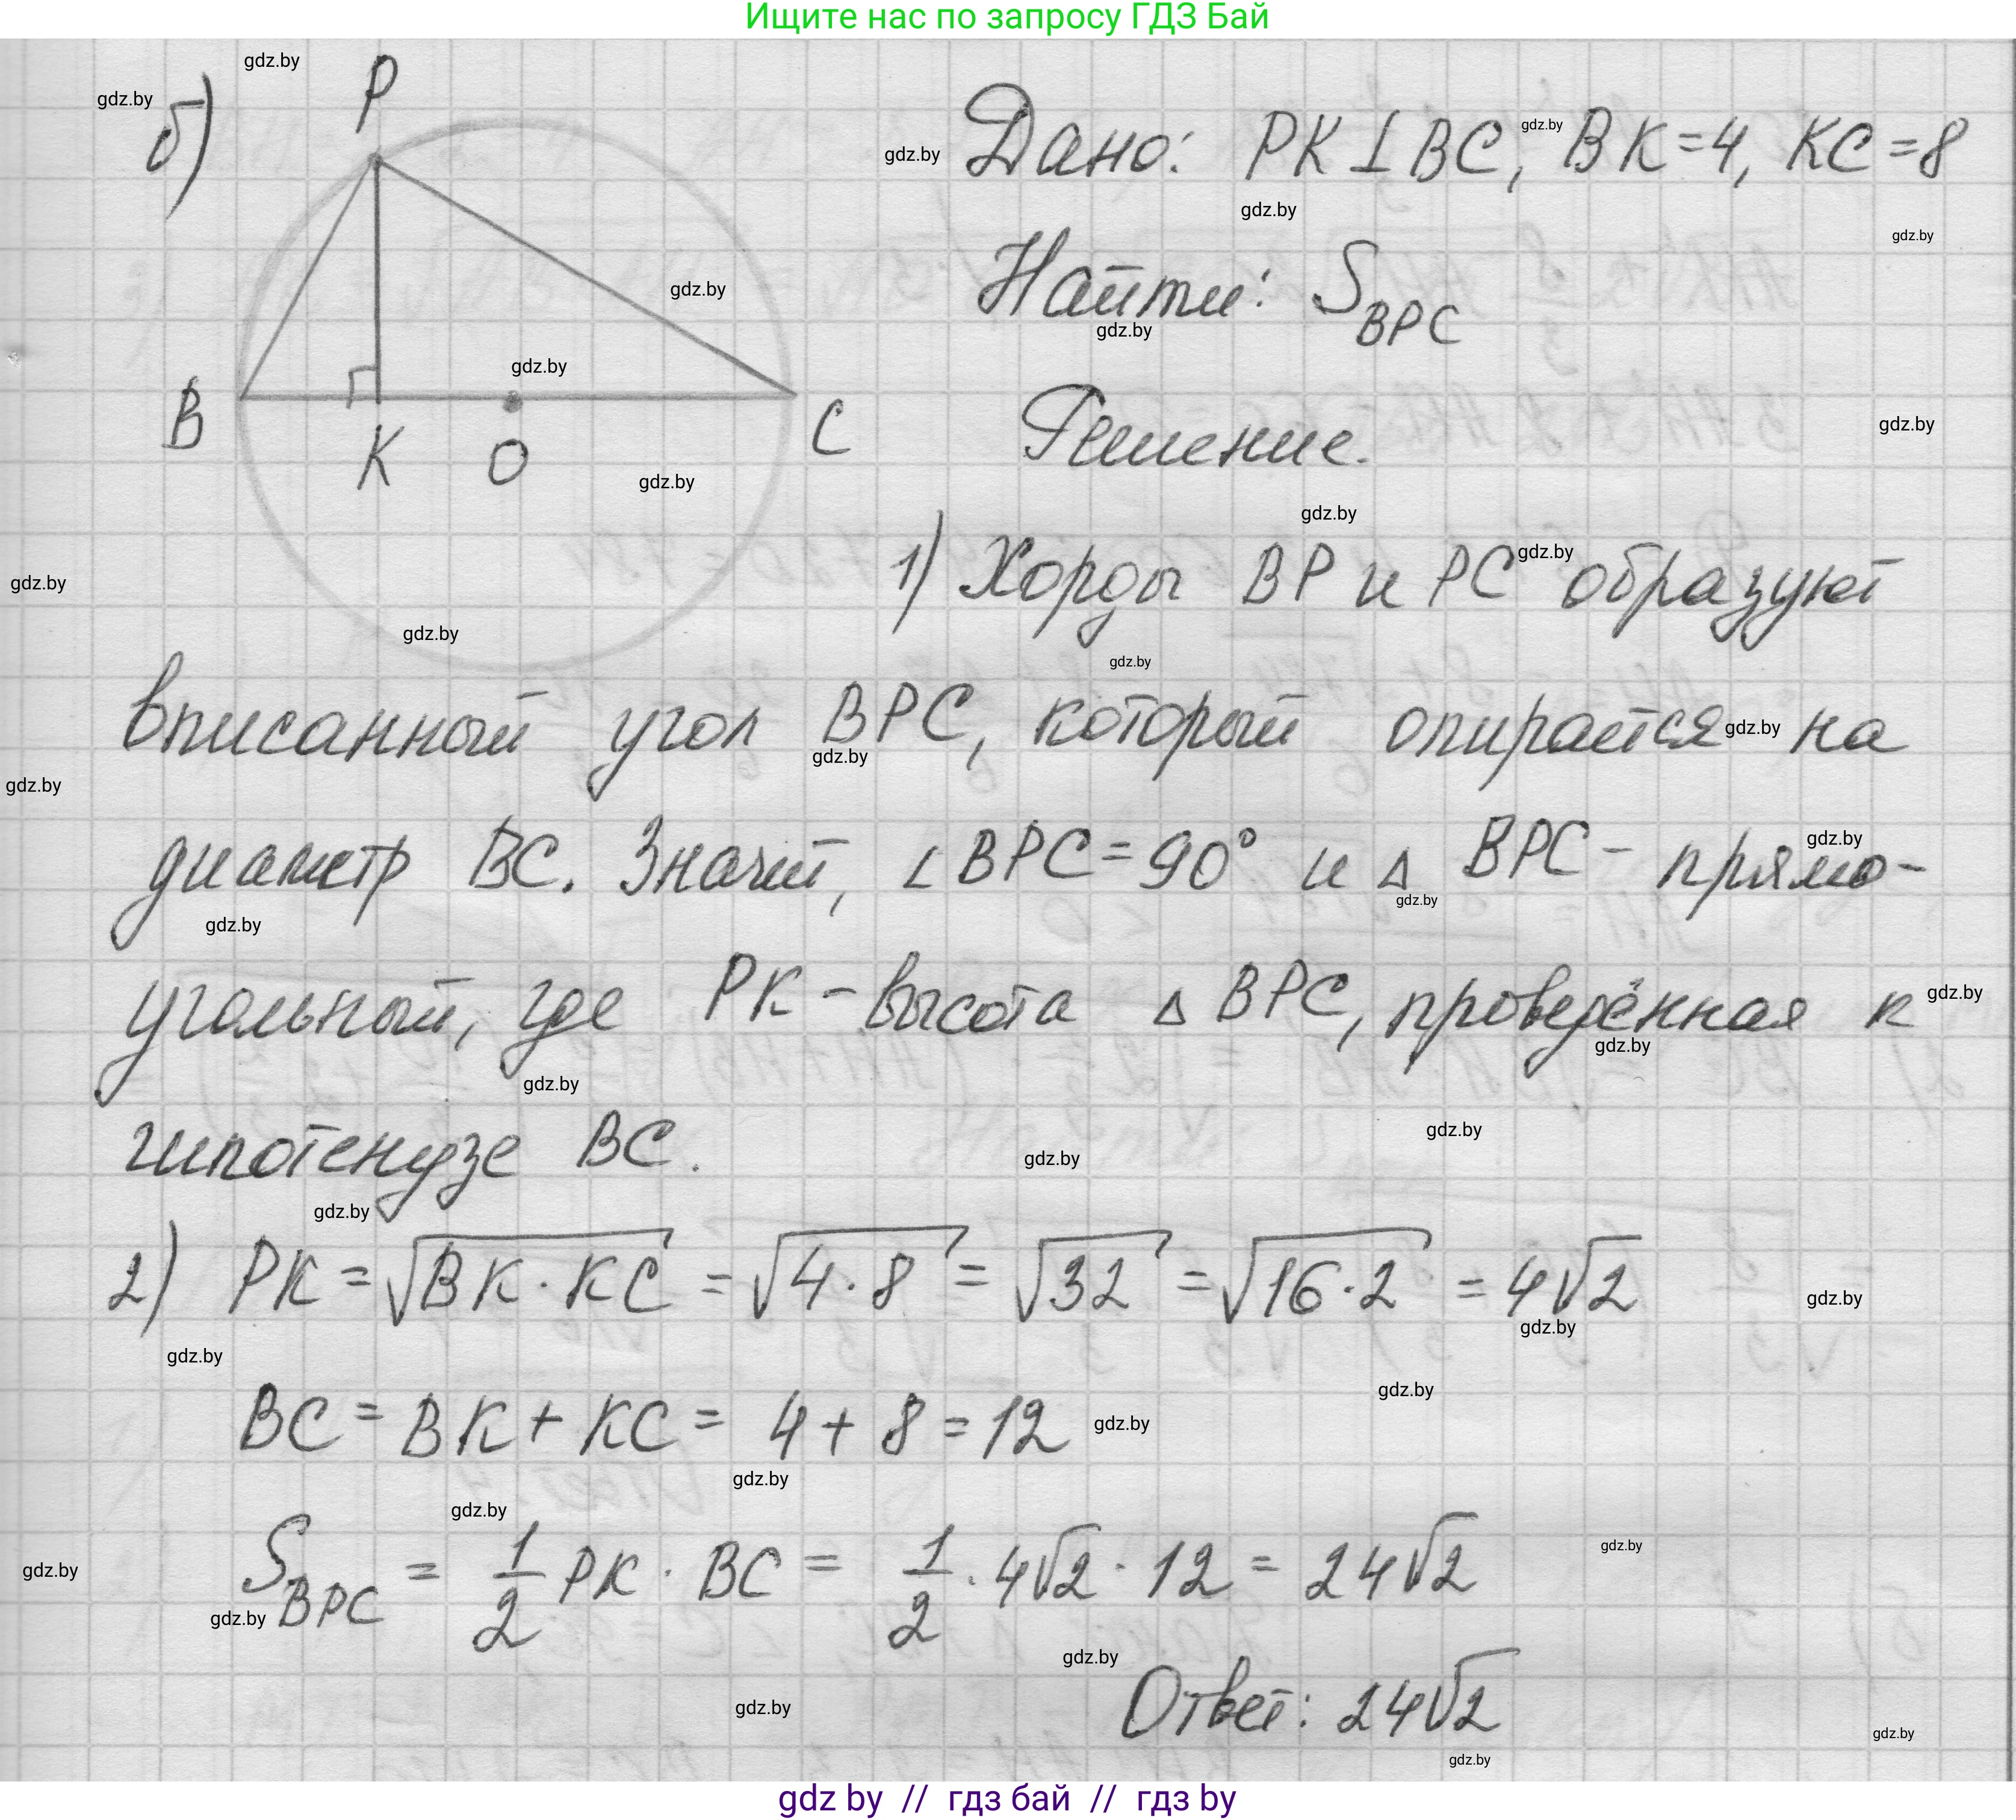 Ищите нас по запросу ГДЗ Бай
б)
P
B
K
O
C
Дано: PK⊥BC, BK=4, KC=8
Найти: S_BPC
Решение.
1) Хорды BP и PC образуют
вписанный угол BPC, который опирается на
диаметр BC. Значит, ∠BPC=90° и △ BPC - прямо-
угольный, где PK - высота △ BPC, проведённая к
гипотенузе BC.
2) PK = √(BK · KC) = √(4 · 8) = √32 = √(16 · 2) = 4√2
BC = BK + KC = 4 + 8 = 12
S_BPC = 1/2 PK · BC = 1/2 · 4√2 · 12 = 24√2
Ответ: 24√2
gdz by // гдз бай // гдз by